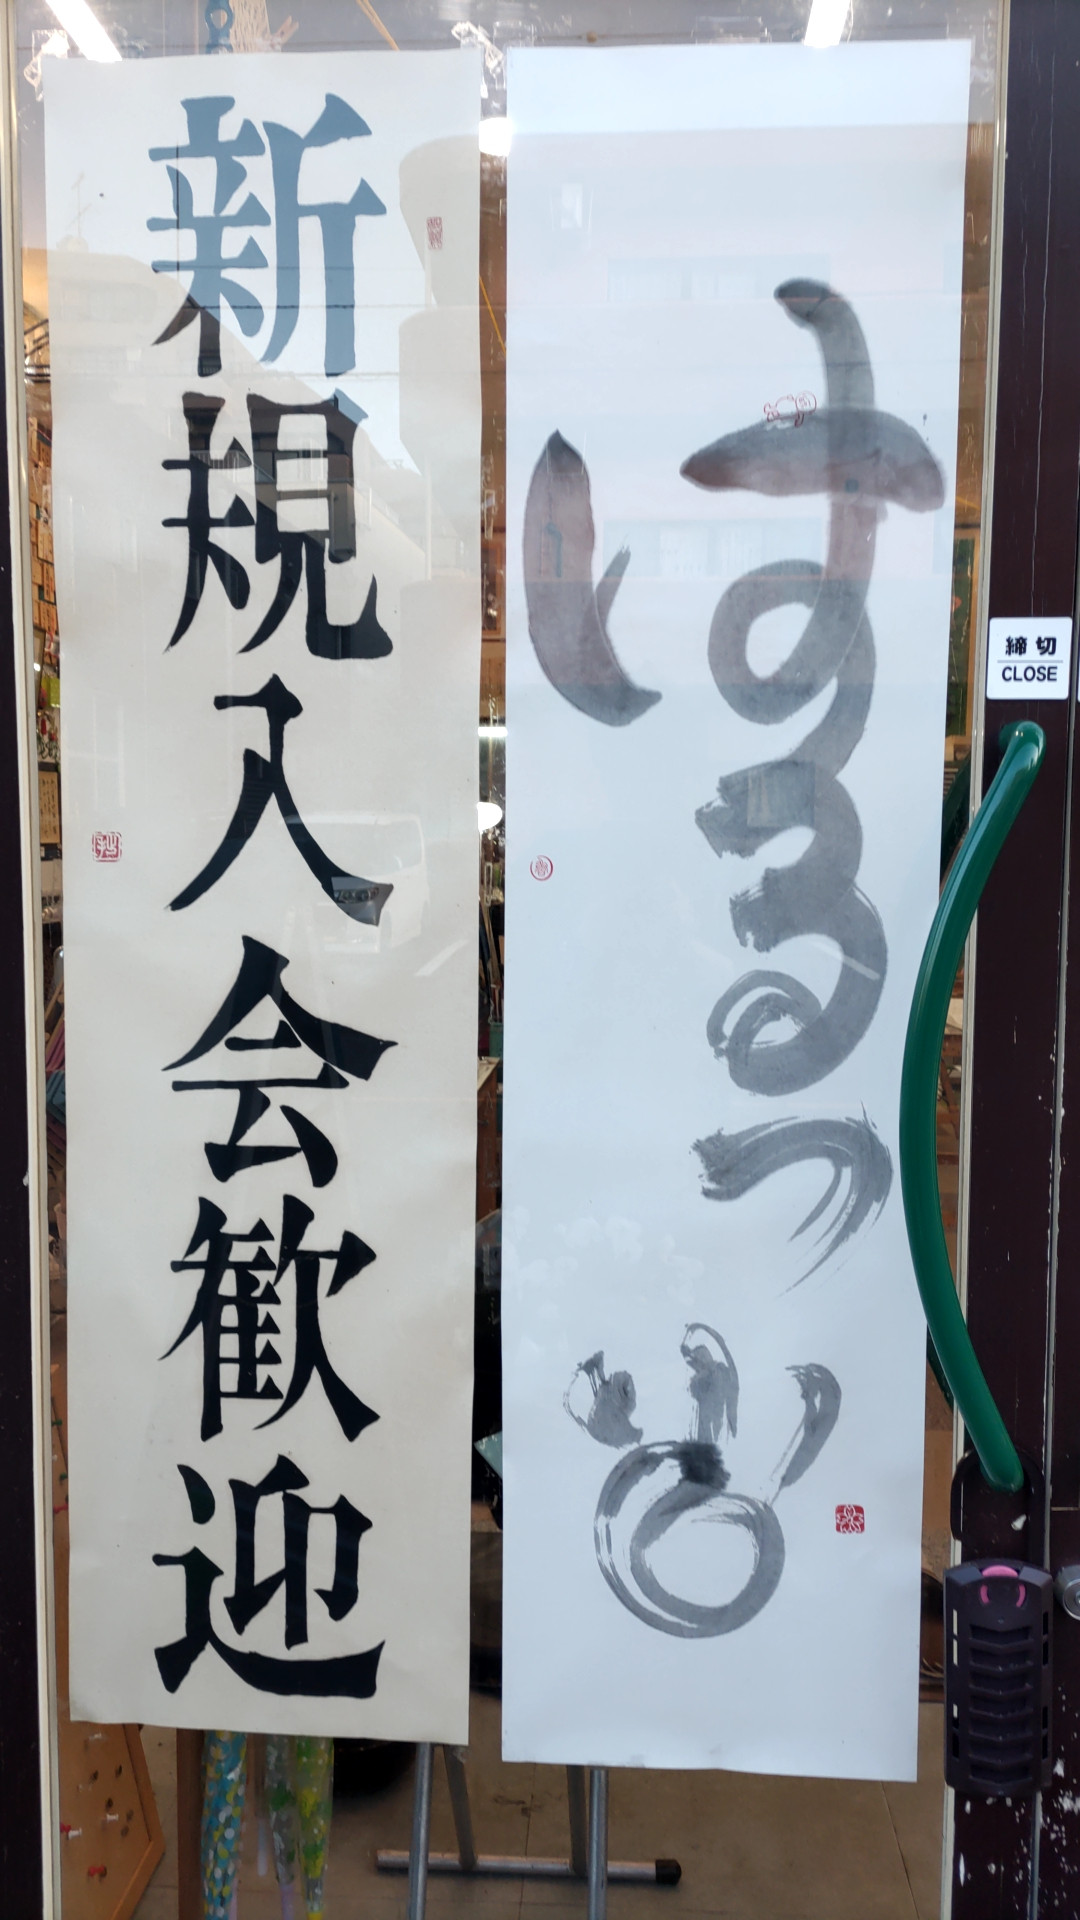 はる
新規入会歓迎
締切
CLOSE